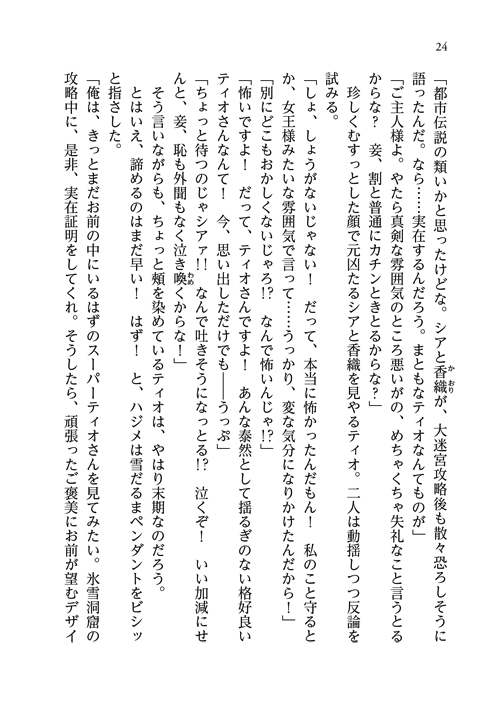 24
「都市伝説の類いかと思ったけどな。シアと香織が、大迷宮攻略後も散々恐ろしそうに
語ったんだ。なら……実在するんだろう。まともなティオなんてものが」
「ご主人様よ。やたら真剣な雰囲気のところ悪いがの、めちゃくちゃ失礼なこと言うとる
からな？　妾、割と普通にカチンときとるからな？」
珍しくむすっとした顔で元凶たるシアと香織を見やるティオ。二人は動揺しつつ反論を
試みる。
「しょ、しょうがないじゃない！　だって、本当に怖かったんだもん！　私のこと守ると
か、女王様みたいな雰囲気で言って……うっかり、変な気分になりかけたんだから！」
「別にどこもおかしくないじゃろ!?　なんで怖いんじゃ!?」
「怖いですよ！　だって、ティオさんですよ！　あんな泰然として揺るぎのない格好良い
ティオさんなんて！　今、思い出しただけでも――うっぷ」
「ちょっと待つのじゃシアァ!!　なんで吐きそうになっとる!?　泣くぞ！　いい加減にせ
んと、妾、恥も外聞もなく泣き喚くからな！」
そう言いながらも、ちょっと頬を染めているティオは、やはり末期なのだろう。
とはいえ、諦めるのはまだ早い！　はず！　と、ハジメは雪だるまペンダントをビシッ
と指さした。
「俺は、きっとまだお前の中にいるはずのスーパーティオさんを見てみたい。氷雪洞窟の
攻略中に、是非、実在証明をしてくれ。そうしたら、頑張ったご褒美にお前が望むデザイ